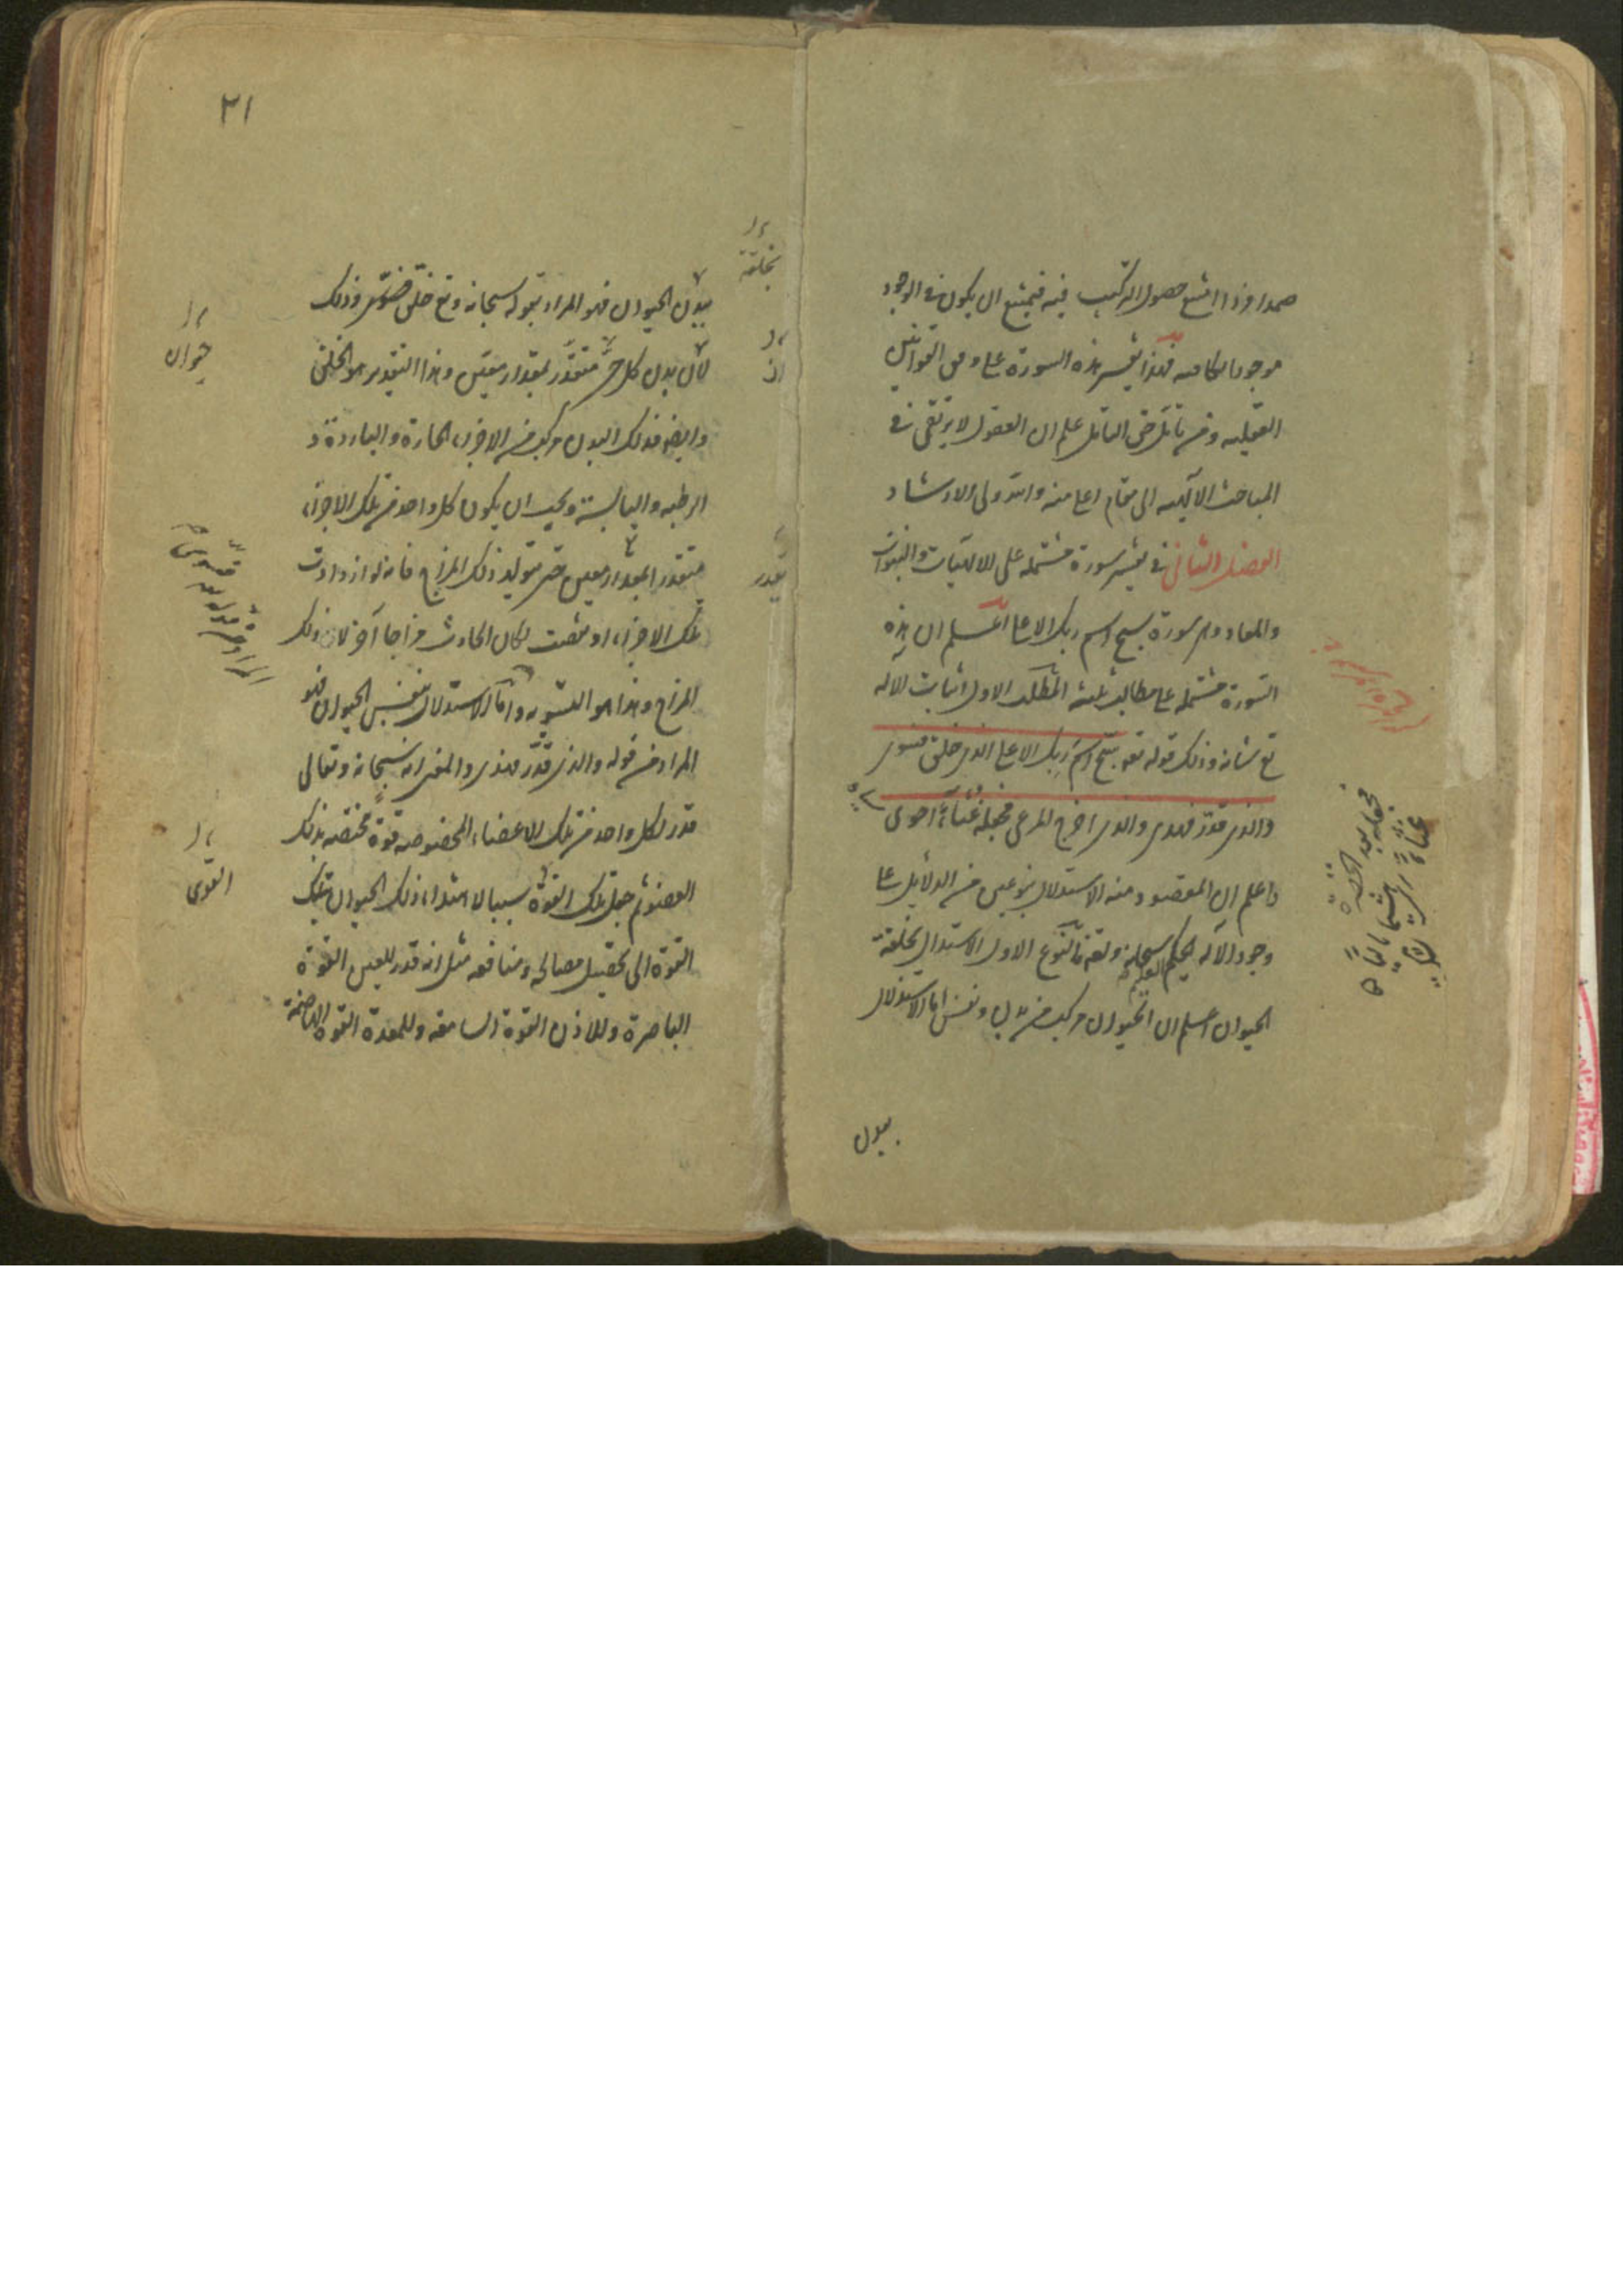 صمدا و اذا امتنع حصول التركيب فيه فيمتنع ان يكون فى الوجود
موجودا مكافيه فهذا تفسير هذه السورة على وفق القوانين
العقليه و من تأمل حق التأمل علم ان العقول لا يرتقى فى
المباحث الالهيه الى مقام اعلى منه و الله ولى الارشاد
الفصل الثانى فى تفسير سورة مشتملة على الالهيات و النبوات
و المعاد و هى سورة سبح اسم ربك الاعلى اعلم ان هذه
السورة مشتملة على مطالب ثلثة المطلب الاول اثبات الاله
تع شانه و ذلك قوله تعه سبح اسم ربك الاعلى الذى خلق فسوى
و الذى قدر فهدى و الذى اخرج المرعى فجعله غثاء احوى
و اعلم ان المقصود منه الاستدلال بنوعين من الدلايل على
وجود الاله الحكيم العليم سبحانه و تعه فالنوع الاول الاستدلال بخلقة
الحيوان اعلم ان الحيوان مركب من بدن و نفس اما الاستدلال
ببدن
فجعله بعد الخضرة
غثاء
٢١
ببدن الحيوان فهو المراد بقوله سبحانه و تع خلق فسوى و ذلك
لان بدن كل حى متقدر بمقدار معين و هذا التقدير هو الخلق
و ايضا فذلك البدن مركب من الاجزاء الحارة و الباردة و
الرطبه و اليابسة و يجب ان يكون كل واحد من تلك الاجزاء
متقدرا بمقدار معين حتى يتولد ذلك المزاج فانه لو ازدادت
تلك الاجزاء او نقصت لكان الحادث مزاجا آخر لا ذلك
المزاج و هذا هو التسويه و اما الاستدلال بنفس الحيوان فهو
المراد من قوله و الذى قدر فهدى و المعنى انه سبحانه و تعالى
قدر لكل واحد من تلك الاعضاء المخصوصه قوة مختصه بذلك
العضو ثم جعل تلك القوة سببا لاهتداء ذلك الحيوان بتلك
القوة الى تحصيل مصالحه و منافعه مثل انه قدر للعين القوة
الباصرة و للاذن القوة السامعه و للمعدة القوة الهاضمة
بخلقة
ان
بقدر
حيوان
القوى